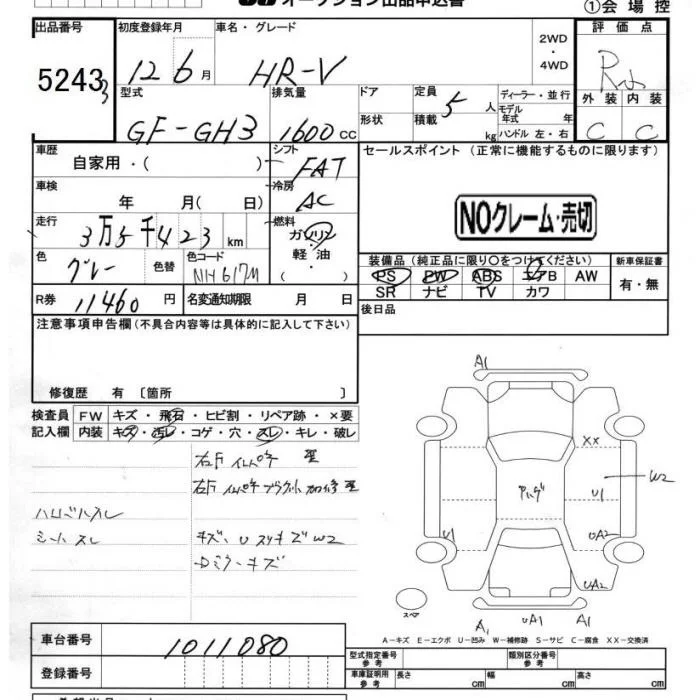 オークション出品申込書
①会場控
出品番号 初度登録年月 車名・グレード 評価点
2WD
・
4WD
52433 12 6月 HR-V
外装 内装
C C
型式 排気量 ドア 定員 ディーラー・並行
モデル
年式 年
5人
GF-GH3 1600cc 形状 積載 kg ハンドル 左・右
車歴 シフト セールスポイント (正常に機能するものに限ります)
自家用・( ) FAT
車検 冷房
年 月( 日) AC
NOクレーム・売切
走行 燃料
3万5千423km ガソリン
・
軽油
・
( )
色 色替 色コード
グレー NH617M
装備品 (純正品に限り○をつけてください) 新車保証書
PS PW ABS エアB AW 有・無
SR ナビ TV カワ
R券 11460円 名変通知期限 月 日
後日品
注意事項申告欄(不具合内容等は具体的に記入して下さい)
修復歴 有 〔箇所 〕
検査員 FW キズ・飛石・ヒビ割・リペア跡・×要
記入欄 内装 キズ・汚レ・コゲ・穴・スレ・キレ・破レ
シートスレ
A1
XX
W2
U1
U1
UA2
UA2
スペア
A1 UA1 A1
A-キズ E-エクボ U-凹み W-補修跡 S-サビ C-腐食 XX-交換済
車台番号 1011080
型式指定番号
参考
類別区分番号
参考
登録番号 車庫証明用
参考
長さ cm 幅 cm 高さ cm